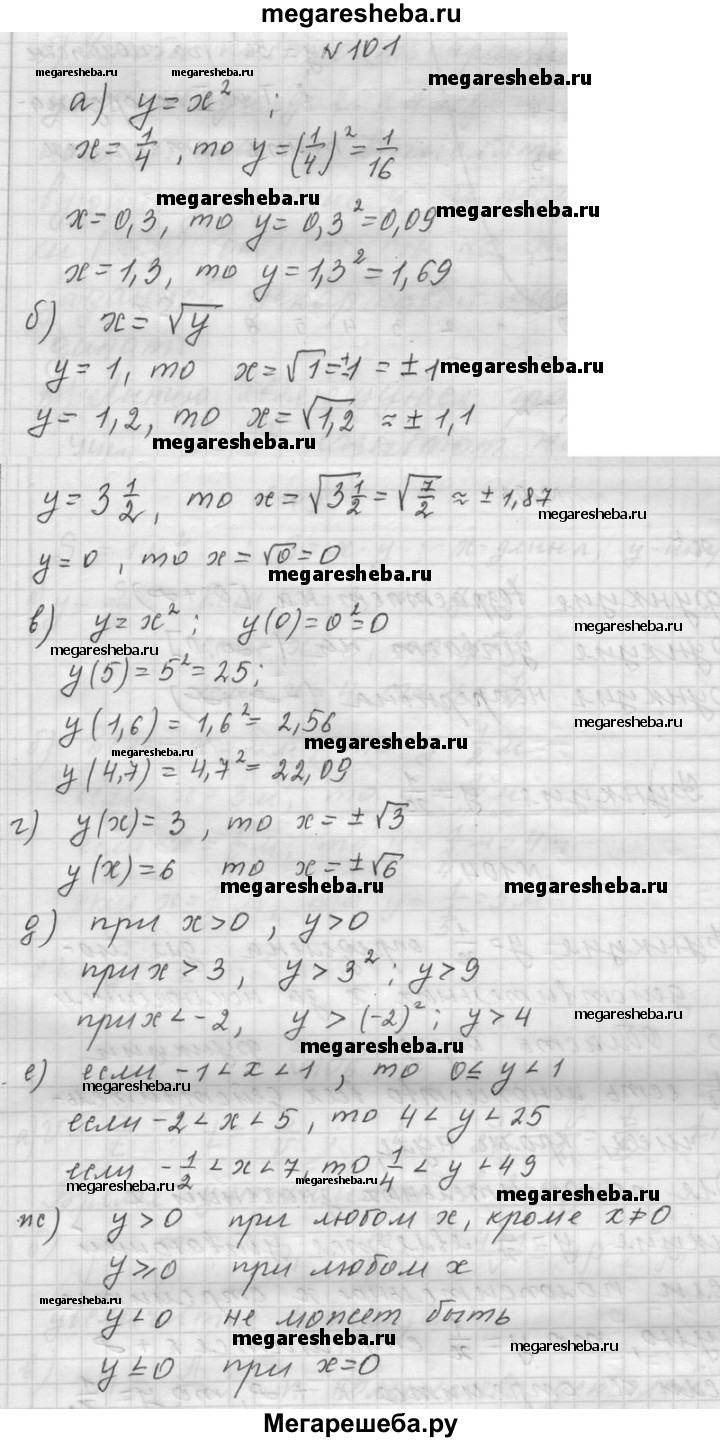 megaresheba.ru
№101
megaresheba.ru megaresheba.ru megaresheba.ru
а) y = x² ;
x = 1/4, то y = (1/4)² = 1/16
megaresheba.ru megaresheba.ru
x = 0,3, то y = 0,3² = 0,09
x = 1,3, то y = 1,3² = 1,69
б) x = √y
y = 1, то x = √1 = ±1 = ±1
megaresheba.ru
y = 1,2, то x = √1,2 ≈ ±1,1
megaresheba.ru
y = 3 1/2, то x = √(3 1/2) = √(7/2) ≈ ±1,87
megaresheba.ru
y = 0, то x = √0 = 0
в) y = x² ; y(0) = 0² = 0
megaresheba.ru
megaresheba.ru
y(5) = 5² = 25;
y(1,6) = 1,6² = 2,56
megaresheba.ru
megaresheba.ru megaresheba.ru
y(4,7) = 4,7² = 22,09
г) y(x) = 3, то x = ±√3
megaresheba.ru
y(x) = 6 то x = ±√6
megaresheba.ru megaresheba.ru
д) при x > 0, y > 0
при x > 3, y > 3² ; y > 9
при x < -2, y > (-2)² ; y > 4
megaresheba.ru
megaresheba.ru
е) если -1 < x < 1, то 0 ≤ y < 1
megaresheba.ru
если -2 < x < 5, то 4 < y < 25
если -1/2 < x < 7, то 1/4 < y < 49
megaresheba.ru megaresheba.ru
ж) y > 0 при любом x, кроме x ≠ 0
y ≥ 0 при любом x
megaresheba.ru
y < 0 не может быть
megaresheba.ru megaresheba.ru
y ≤ 0 при x = 0
Мегарешеба.ру